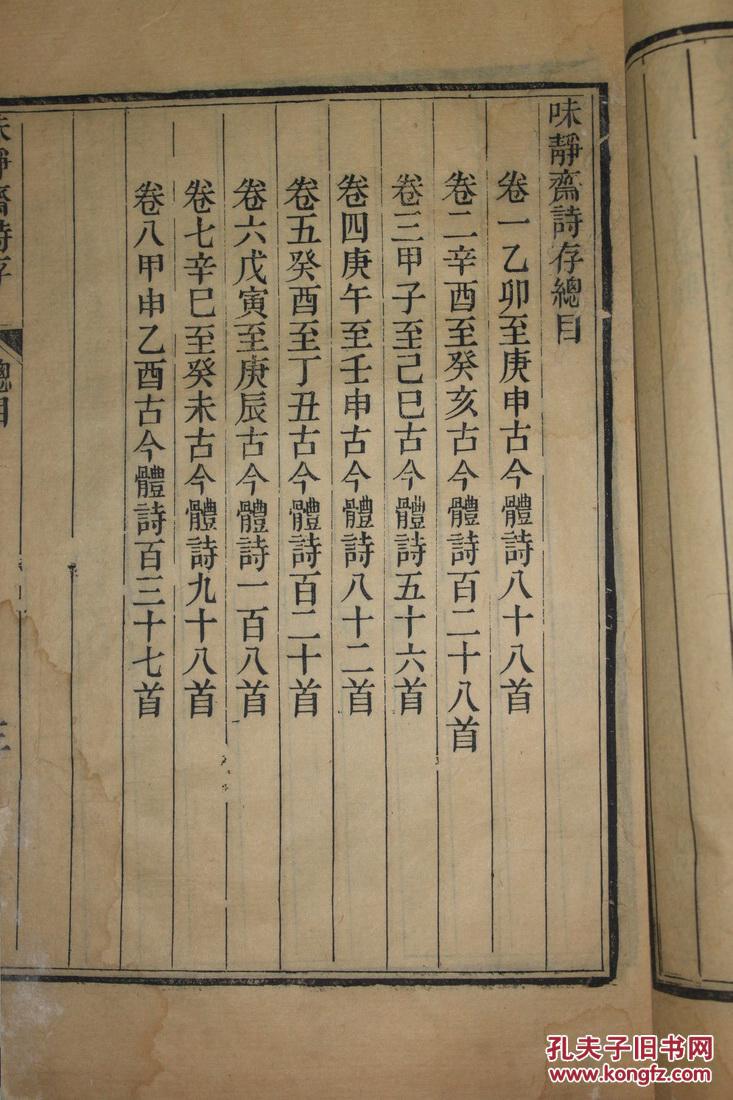 味靜齋詩存總目
卷一乙卯至庚申古今體詩八十八首
卷二辛酉至癸亥古今體詩百二十八首
卷三甲子至己巳古今體詩五十六首
卷四庚午至壬申古今體詩八十二首
卷五癸酉至丁丑古今體詩百二十首
卷六戊寅至庚辰古今體詩一百八首
卷七辛巳至癸未古今體詩九十八首
卷八甲申乙酉古今體詩百三十七首
味靜齋詩存
總目
孔夫子旧书网
www.kongfz.com